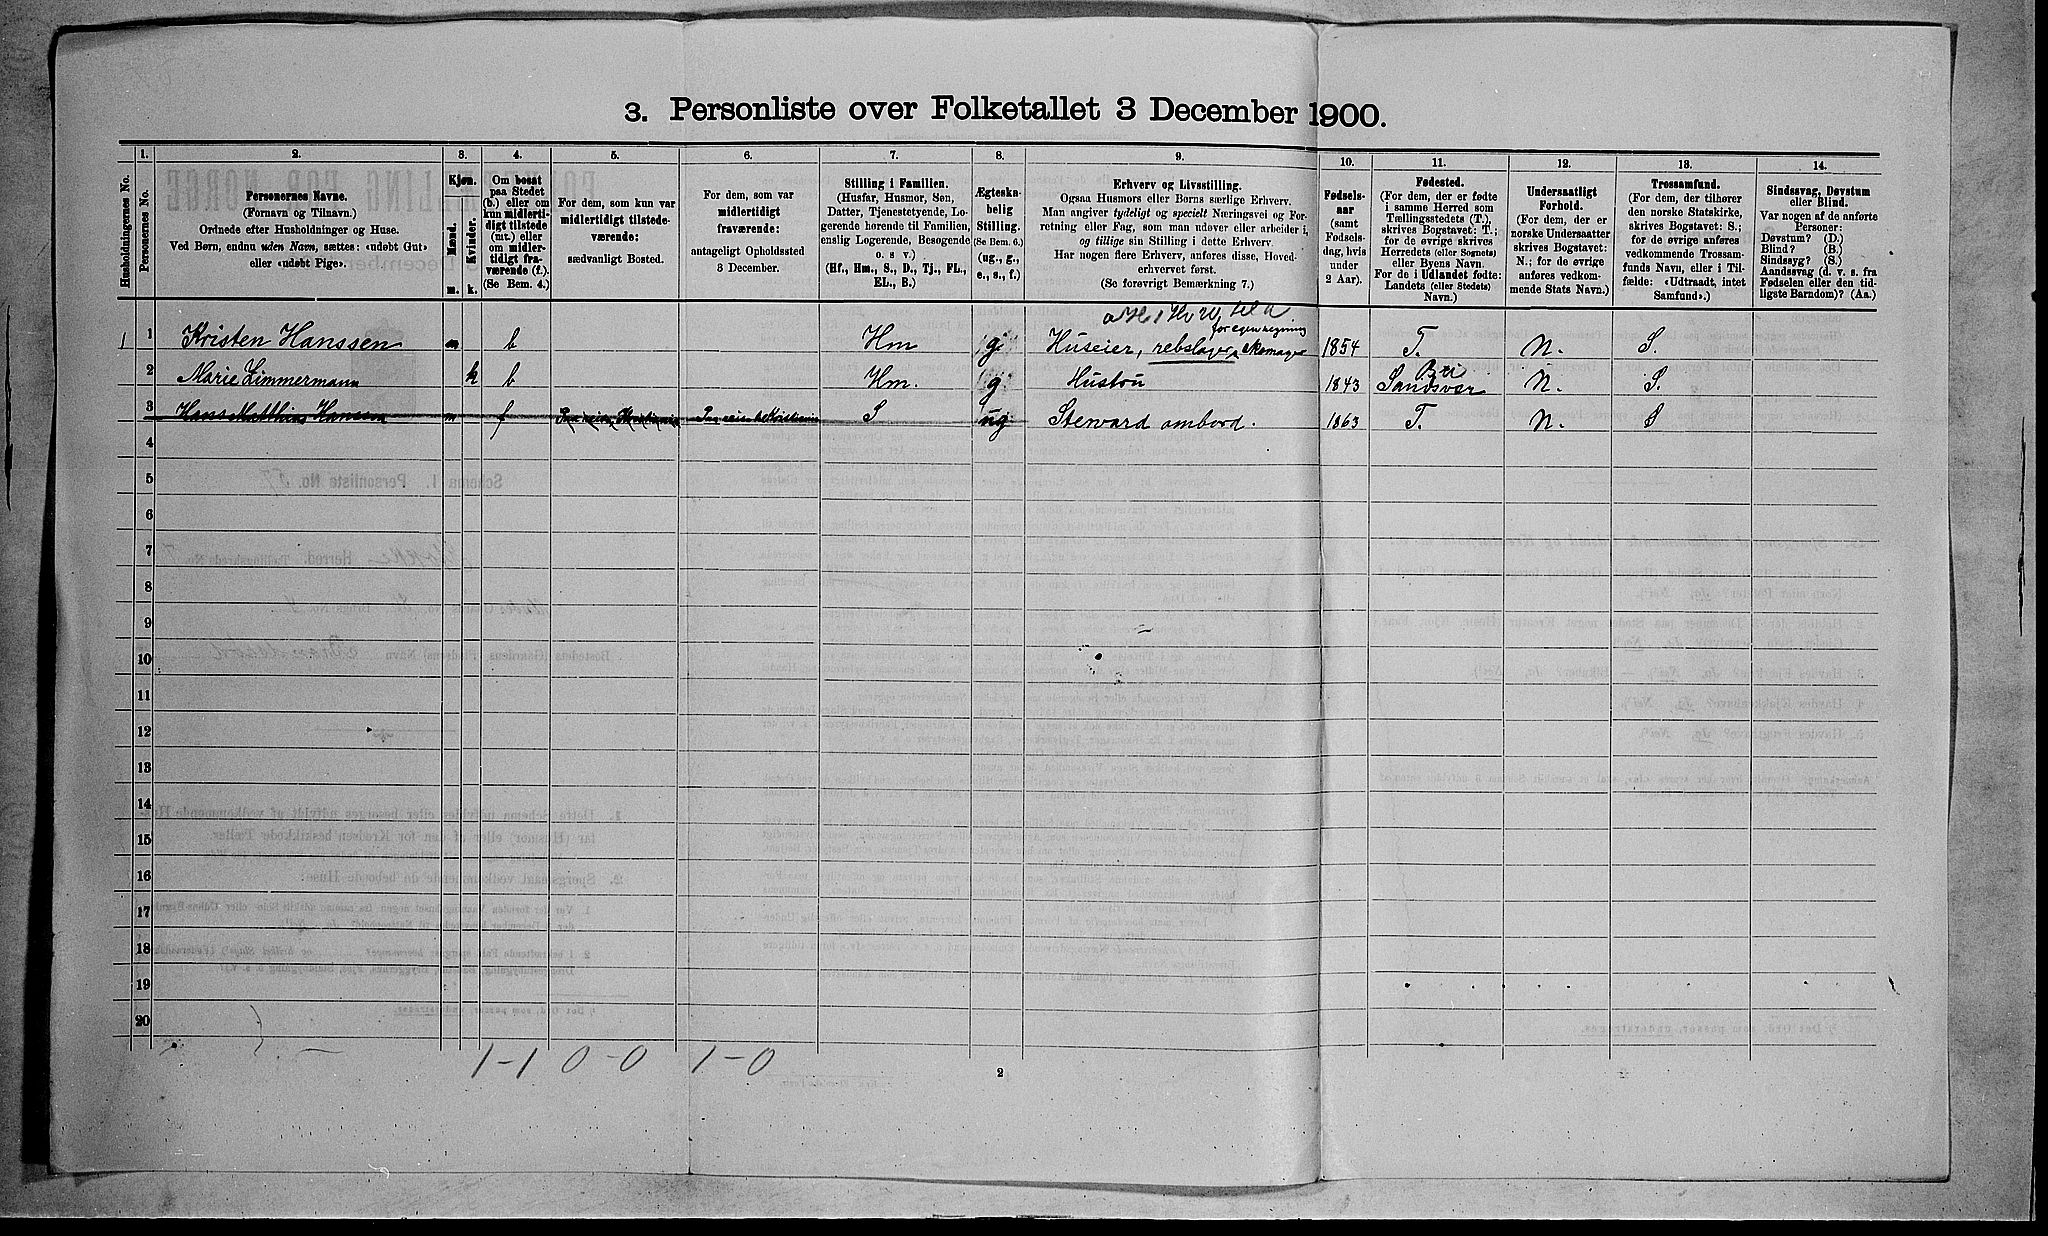 3. Personliste over Folketallet 3 December 1900.
1. 2. 3. 4. 5. 6. 7. 8. 9. 10. 11. 12. 13. 14.
Husholdningernes No.
Personernes No.
Personernes Navne.
(Fornavn og Tilnavn.)
Ordnede efter Husholdninger og Huse.
Ved Børn, endnu uden Navn, sættes: «udøbt Gut»
eller «udøbt Pige».
Kjøn.
Mænd.
Kvinder.
m. k.
Om bosat
paa Stedet
(b.) eller om
kun midlerti-
digt tilstede
(mt.) eller
om midler-
tidigt fra-
værende (f.).
(Se Bem. 4.)
For dem, som kun var
midlertidigt tilstede-
værende:
sædvanligt Bosted.
For dem, som var
midlertidigt
fraværende:
antageligt Opholdssted
3 December.
Stilling i Familien.
(Husfar, Husmor, Søn,
Datter, Tjenestetyende, Lo-
gerende hørende til Familien,
enslig Logerende, Besøgende
o. s. v.)
(Hf., Hm., S., D., Tj., FL.,
EL., B.)
Ægteska-
belig
Stilling.
(Se Bem. 6.)
(ug., g.,
e., s., f.)
Erhverv og Livsstilling.
Ogsaa Husmors eller Børns særlige Erhverv.
Man angiver tydeligt og specielt Næringsvei og For-
retning eller Fag, som man udøver eller arbeider i,
og tillige sin Stilling i dette Erhverv.
Har nogen flere Erhverv, anføres disse, Hoved-
erhvervet først.
(Se forøvrigt Bemærkning 7.)
Fødsels-
aar
(samt
Fødsels-
dag, hvis
under
2 Aar).
Fødested.
(For dem, der er fødte
i samme Herred som
Tællingsstedets (T.),
skrives Bogstavet: T.;
for de øvrige skrives
Herredets (eller Sognets)
eller Byens Navn.
For de i Udlandet fødte:
Landets (eller Stedets)
Navn.)
Undersaatligt
Forhold.
(For dem, der er
norske Undersaatter
skrives Bogstavet:
N.; for de øvrige
anføres vedkom-
mende Stats Navn.)
Trossamfund.
(For dem, der tilhører
den norske Statskirke,
skrives Bogstavet: S.;
for de øvrige anføres
vedkommende Trossam-
funds Navn, eller i Til-
fælde: «Udtraadt, intet
Samfund».)
Sindssvag, Døvstum
eller Blind.
Var nogen af de anførte
Personer:
Døvstum? (D.)
Blind? (B.)
Sindssyg? (S.)
Aandssvag (d. v. s. fra
Fødselen eller den tid-
ligste Barndom)? (Aa.)
for egen regning
1 1 Kristen Hanssen m b Hm g Huseier, rebslager, skomager 1854 T. N. S.
2 Marie Zimmermann k b Hm. g Hustru 1843 Sandsvær N. S.
3 Hans Matthias Hanssen m f S ug Steward ombord. 1863 T. N. S
4
5
6
7
8
9
10
11
12
13
14
15
16
17
18
19
20
1-1 0-0 1-0
2